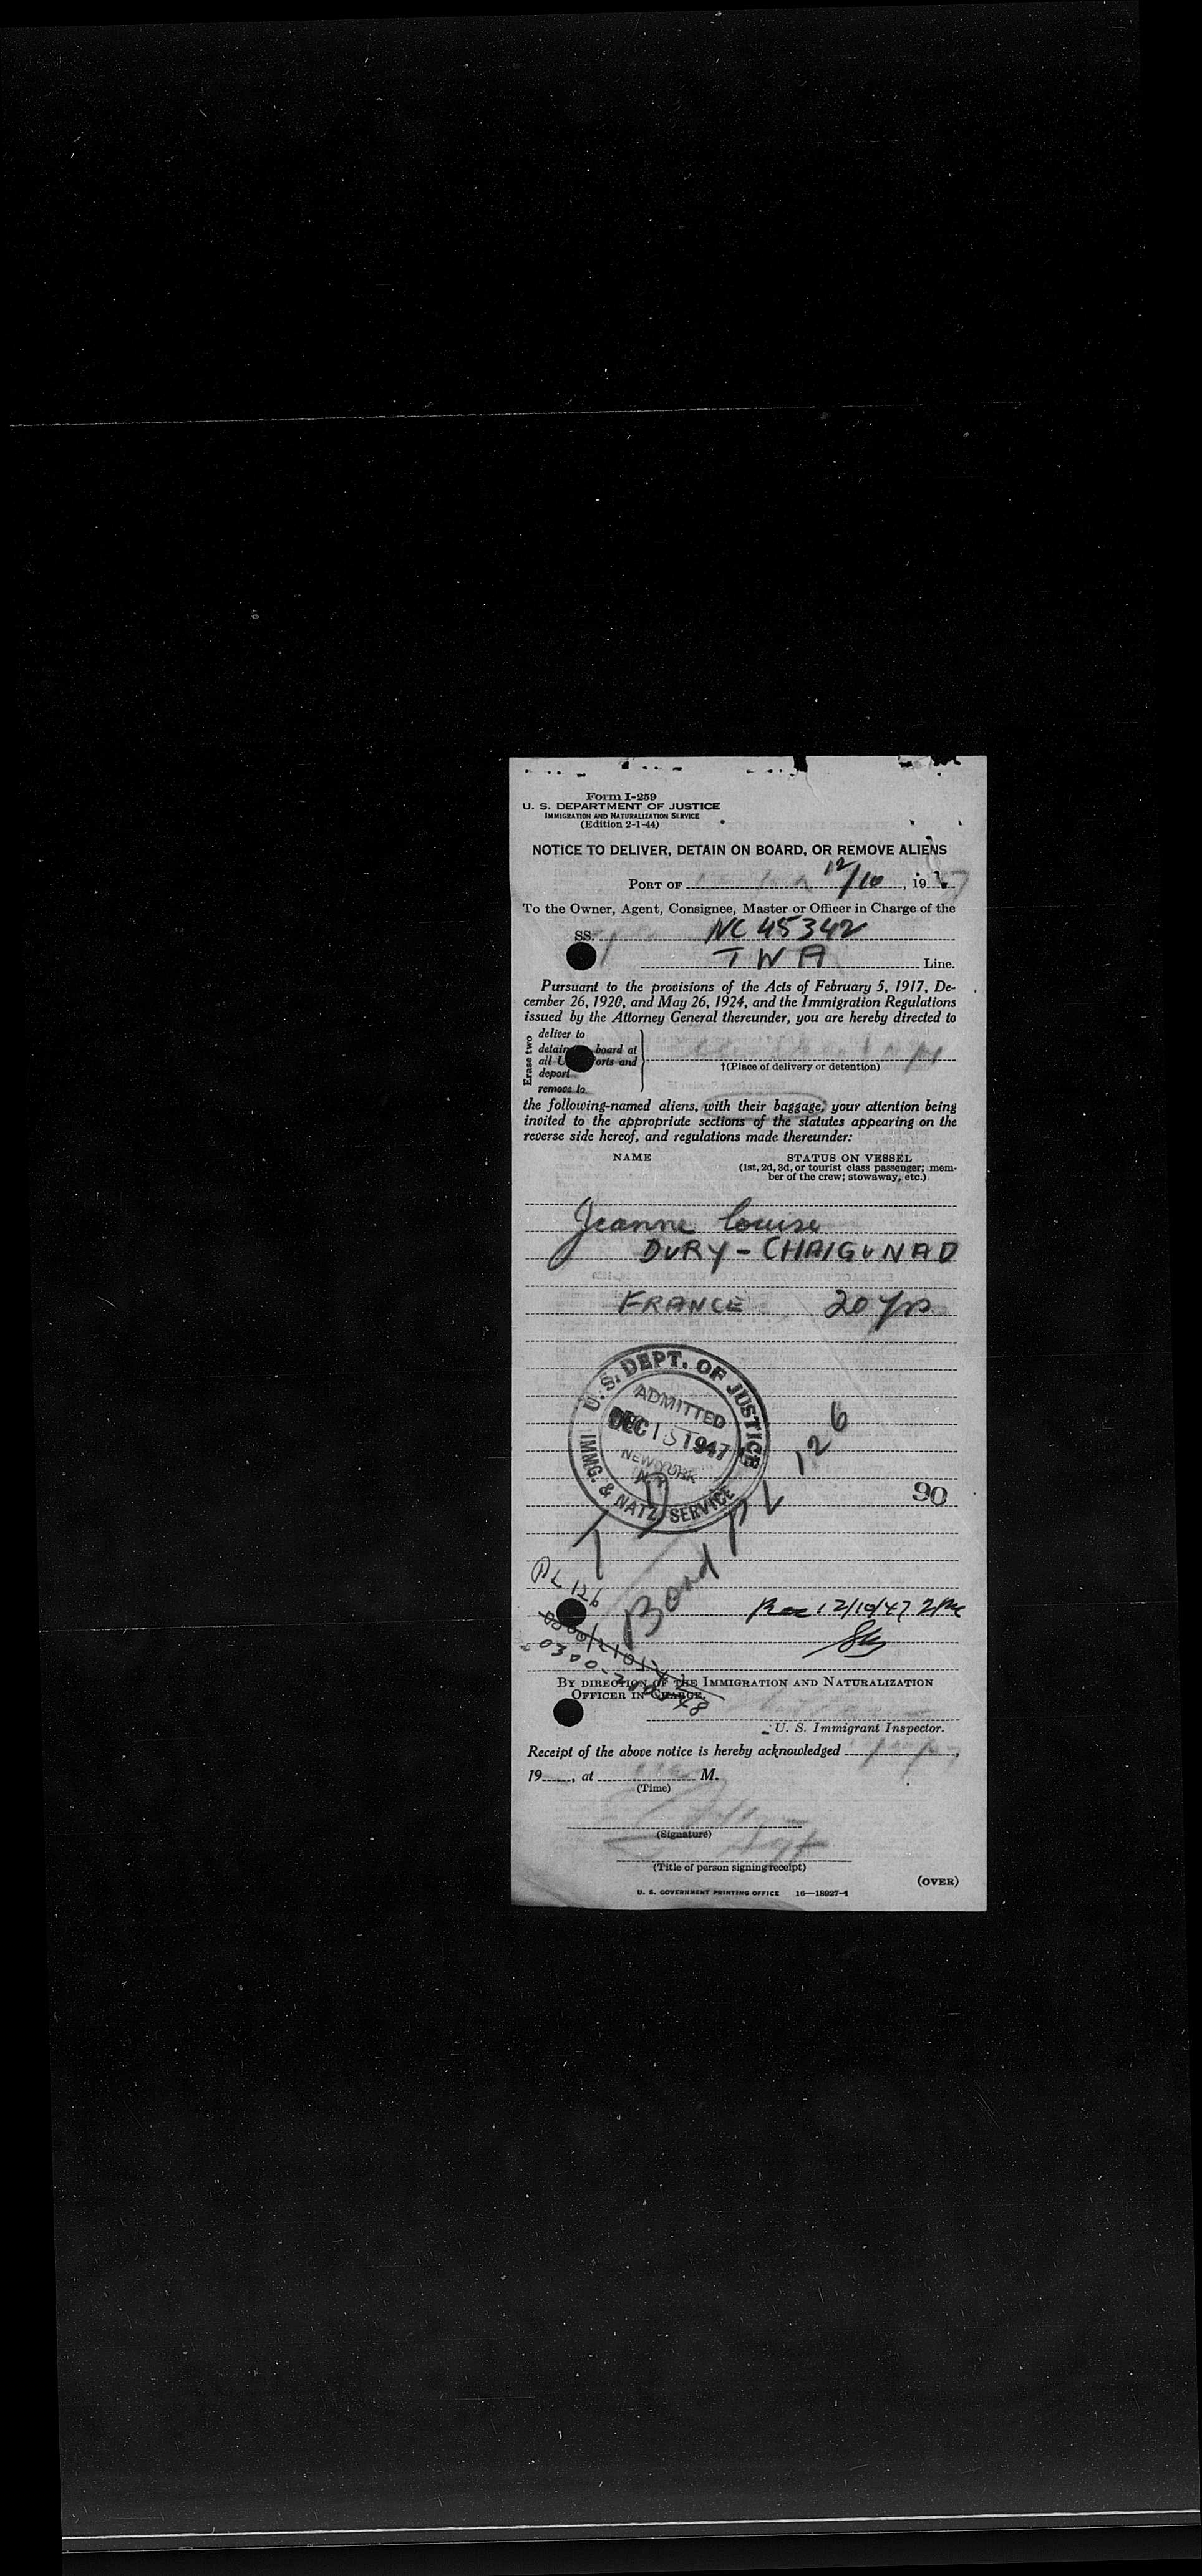 Form I-259
U. S. DEPARTMENT OF JUSTICE
IMMIGRATION AND NATURALIZATION SERVICE
(Edition 2-1-44)
NOTICE TO DELIVER, DETAIN ON BOARD, OR REMOVE ALIENS
PORT OF 12/10, 19
To the Owner, Agent, Consignee, Master or Officer in Charge of the
SS. NC 45342
TWA Line.
Pursuant to the provisions of the Acts of February 5, 1917, De-
cember 26, 1920, and May 26, 1924, and the Immigration Regulations
issued by the Attorney General thereunder, you are hereby directed to
Erase two
deliver to
detain board at
all U orts and
deport
remove to
†(Place of delivery or detention)
the following-named aliens, with their baggage, your attention being
invited to the appropriate sections of the statutes appearing on the
reverse side hereof, and regulations made thereunder:
NAME STATUS ON VESSEL
(1st, 2d, 3d, or tourist class passenger; mem-
ber of the crew; stowaway, etc.)
Jeanne Louise
DURY - CHAIGUNAD
FRANCE 20 yrs
U. S. DEPT. OF JUSTICE
ADMITTED
DEC 15 1947
NEW YORK
N.Y.
IMMG. & NATZ. SERVICE
90
Bond PL 126
PL 126
Rec 12/10/47 2PM
BY DIRECTION OF THE IMMIGRATION AND NATURALIZATION
OFFICER IN CHARGE.
U. S. Immigrant Inspector.
Receipt of the above notice is hereby acknowledged ,
19 , at M.
(Time)
(Signature)
(Title of person signing receipt)
(OVER)
U. S. GOVERNMENT PRINTING OFFICE 16—18027-1